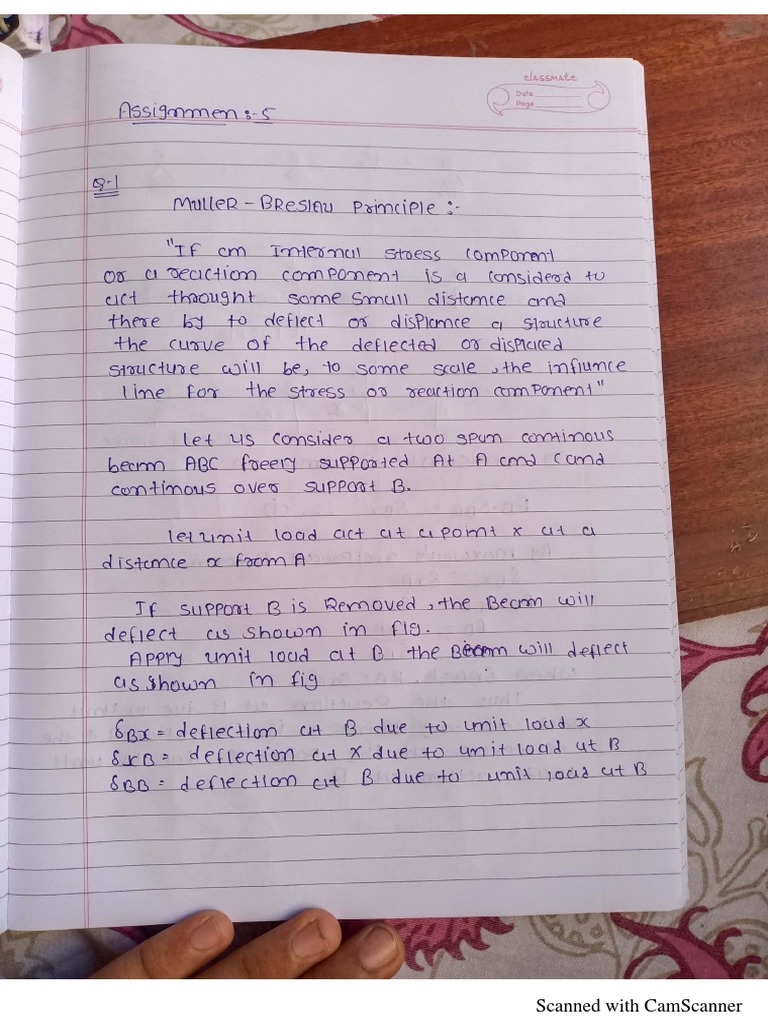 classmate
Date
Page
Assignmen:-5
Q-1
Muller-Breslau Principle:-
"If an Internal stress component
or a reaction component is a considerd to
act throught some small distance and
there by to deflect or displance a structure
the curve of the deflected or displaced
structure will be, to some scale, the influnce
line for the stress or reaction component"
let us consider a two span continous
beam ABC freely supported At A and C and
continous over support B.
let unit load act at a point x at a
distance x from A
If support B is Removed, the Beam will
deflect as shown in fig.
Apply unit load at B the Beam will deflect
as shown in fig
δBX = deflection at B due to unit load x
δxB = deflection at x due to unit load at B
δBB = deflection at B due to unit load at B
Scanned with CamScanner